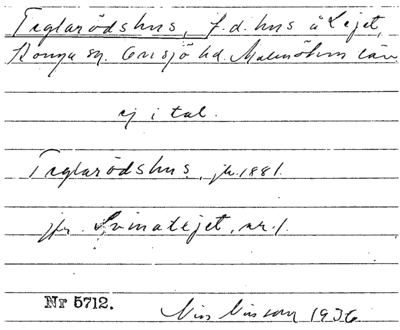 Teglarödshus, f.d. hus å Lejet,
Konga sn. Onsjö hd. Malmöhus län
ej i tal.
Teglarödshus, jb. 1881.
jfr. Svinalejet, nr. 1.
Nr 5712.
Nils Nilsson 1936